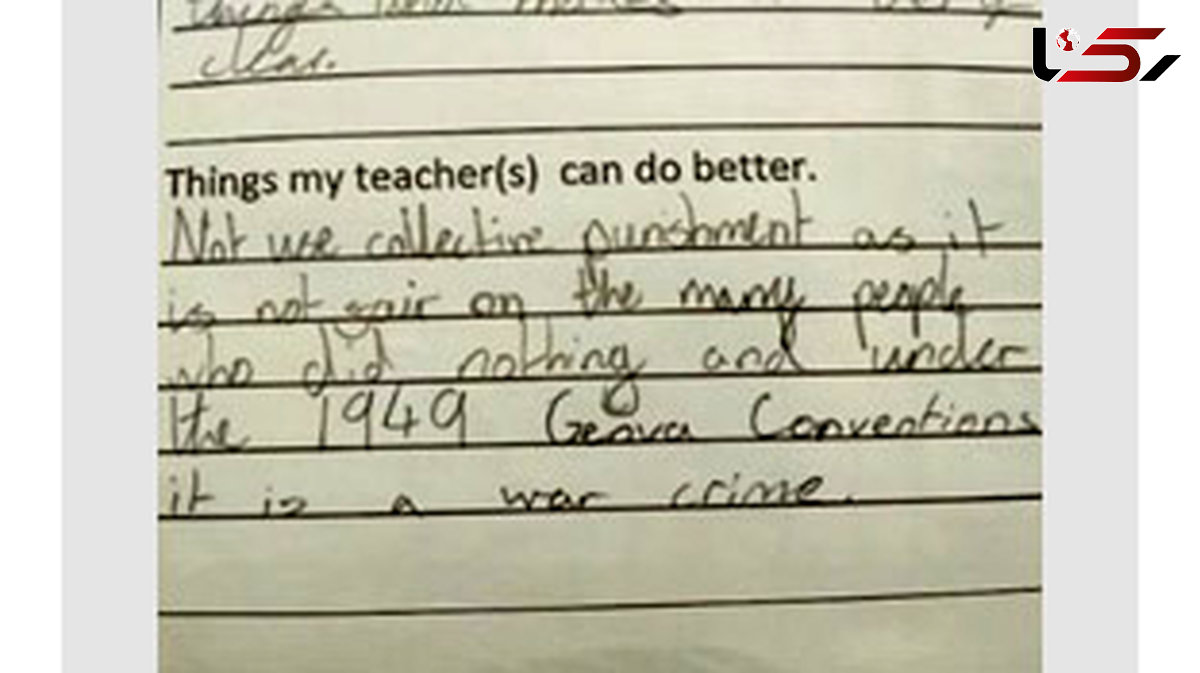 things
clear.
Things my teacher(s) can do better.
Not use collective punishment as it
is not fair on the many people
who did nothing and under
the 1949 Genova Conventions
it is a war crime.